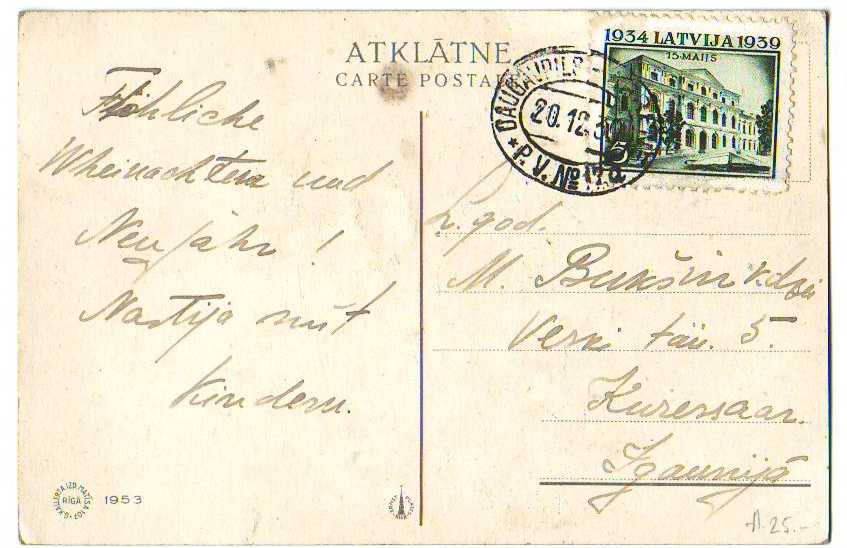 ATKLĀTNE
CARTE POSTALE
1934 LATVIJA 1939
15·MAIJS
5
DAUGAVPILS
20.12.39
P.V.№17a
Fröhliche
Wheinachten und
Neujahr!
Nastija mit
Kindern.
L. god.
M. Bukšin k.dze
Veski tän. 5.
Kuressaar.
Igaunijā
RĪGA
1953
A. 25.-